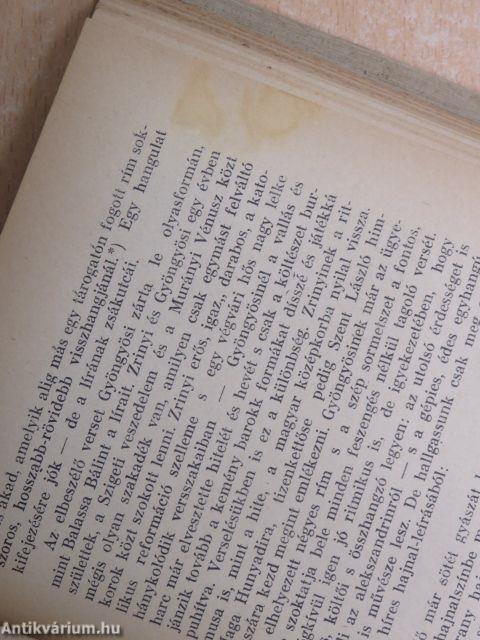 akad, amelyik alig más egy tárogatón fogott rím sok-
szoros, hosszabb-rövidebb visszhangjánál.*) Egy hangulat
kifejezésére jók — de a lírának zsákutcái.
Az elbeszélő verset Gyöngyösi zárta le olyasformán,
mint Balassa Bálint a lírait. Zrinyi és Gyöngyösi egy évben
születtek, a Szigeti veszedelem és a Murányi Vénusz közt
mégis olyan szakadék van, amilyen csak egymást felváltó
korok közt szokott lenni. Zrinyi erős, igaz, darabos, a kato-
likus reformáció szelleme s egy végvári hős nagy lelke
hánykolódik versszakaiban — Gyöngyösinél a vallás és
harc már elvesztette hitelét és hevét s csak a költészet bur-
jánzik tovább a kemény barokk formákat díszszé és játékká
puhítva. Verselésükben is ez a különbség. Zrinyinek a rit-
musa is, mint a hite, a magyar középkorba nyúlal vissza.
Maga Hunyadira, tizenkettőse pedig Szent László him-
szára kezd megint emlékezni. Gyöngyösinek már az ügye-
elhelyezett négyes rím s a szép sormetszet a fontos,
szoktatja bele minden feszengés nélkül tagoló versét.
igkívül igen jó ritmikus is, de igyekezetében, hogy
költői s összhangzó legyen: az utolsó érdességet is
az alekszandrinról — s a gépies, édes egyhangú
is művésze lesz. De hallgassunk csak meg
híres hajnal-leírásából:
már sötét gyászát
hajnalszínbe
Antikvárium.hu
Antikvárium.hu